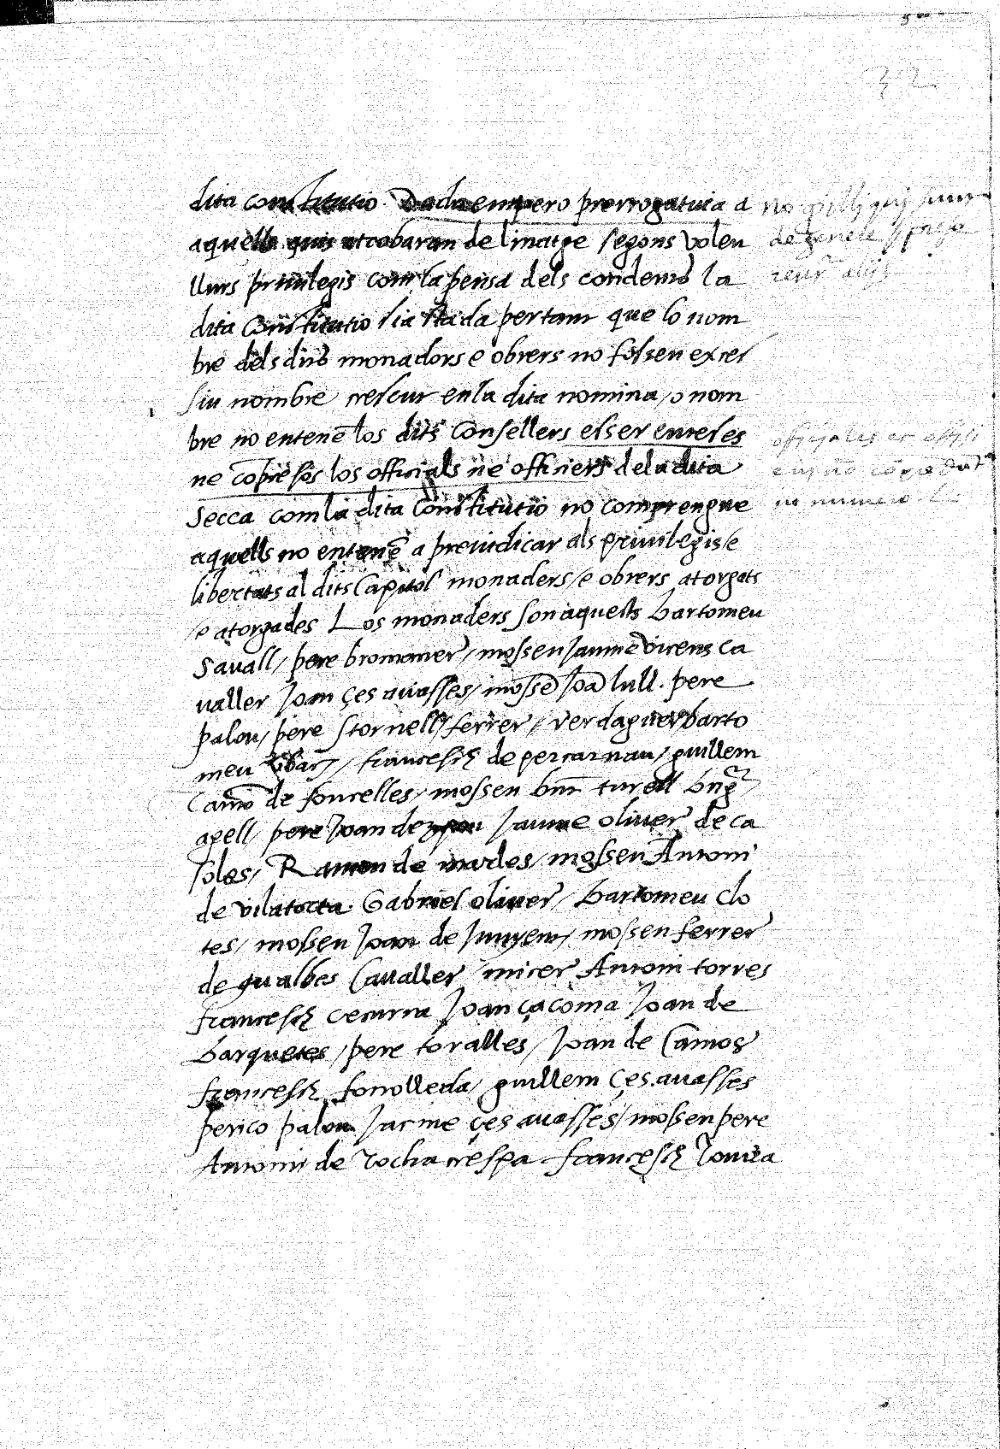 32
dita constitutio. Dada empero prerrogativa a
aquells quis atrobaran de linatge segons volen
llurs privilegis com la pensa dels condemõ la
dita Constitutio sia stada pertant que lo nom
bre dels dits monadors e obrers no fossen exces
siu nombre crescut en la dita nomina / o nom
bre no entenẽ los dits Consellers esser enteses
ne cõpresos los officials ne officiers de la dita
Secca com la dita Constitutio no comprengue
aquells no entenẽ a preiudicar als privilegis / e
libertats al dits Capitol monaders / e obrers atorgats
/ e atorgades Los monaders son aquests bartomeu
Savall / pere bromoner / mossen Jaume vicens ca
valler Joan çes avasses / mossẽ Joã lull. pere
palou / pere stornell / ferrer / verdaguer / barto
meu / francesch de percarnau / guillem
Camõ de foncelles / mossen turell
agell / pere Joan Jaume oliver de ca
soles / Ramon de mossen Antoni
de vilatorta Gabriel oliver / bartomeu Clo
tes / mossen Joan de Junyent / mossen ferrer
de gualbes Cavaller micer Antoni torres
francesch Joan çacoma Joan de
barquetes / pere toralles / Joan de Camos
francesch fonolleda / guillem çes. avasses
perico palou Jacme çes avasses / mossen pere
Antoni de rocha crespa francesch
officiales et
no numero